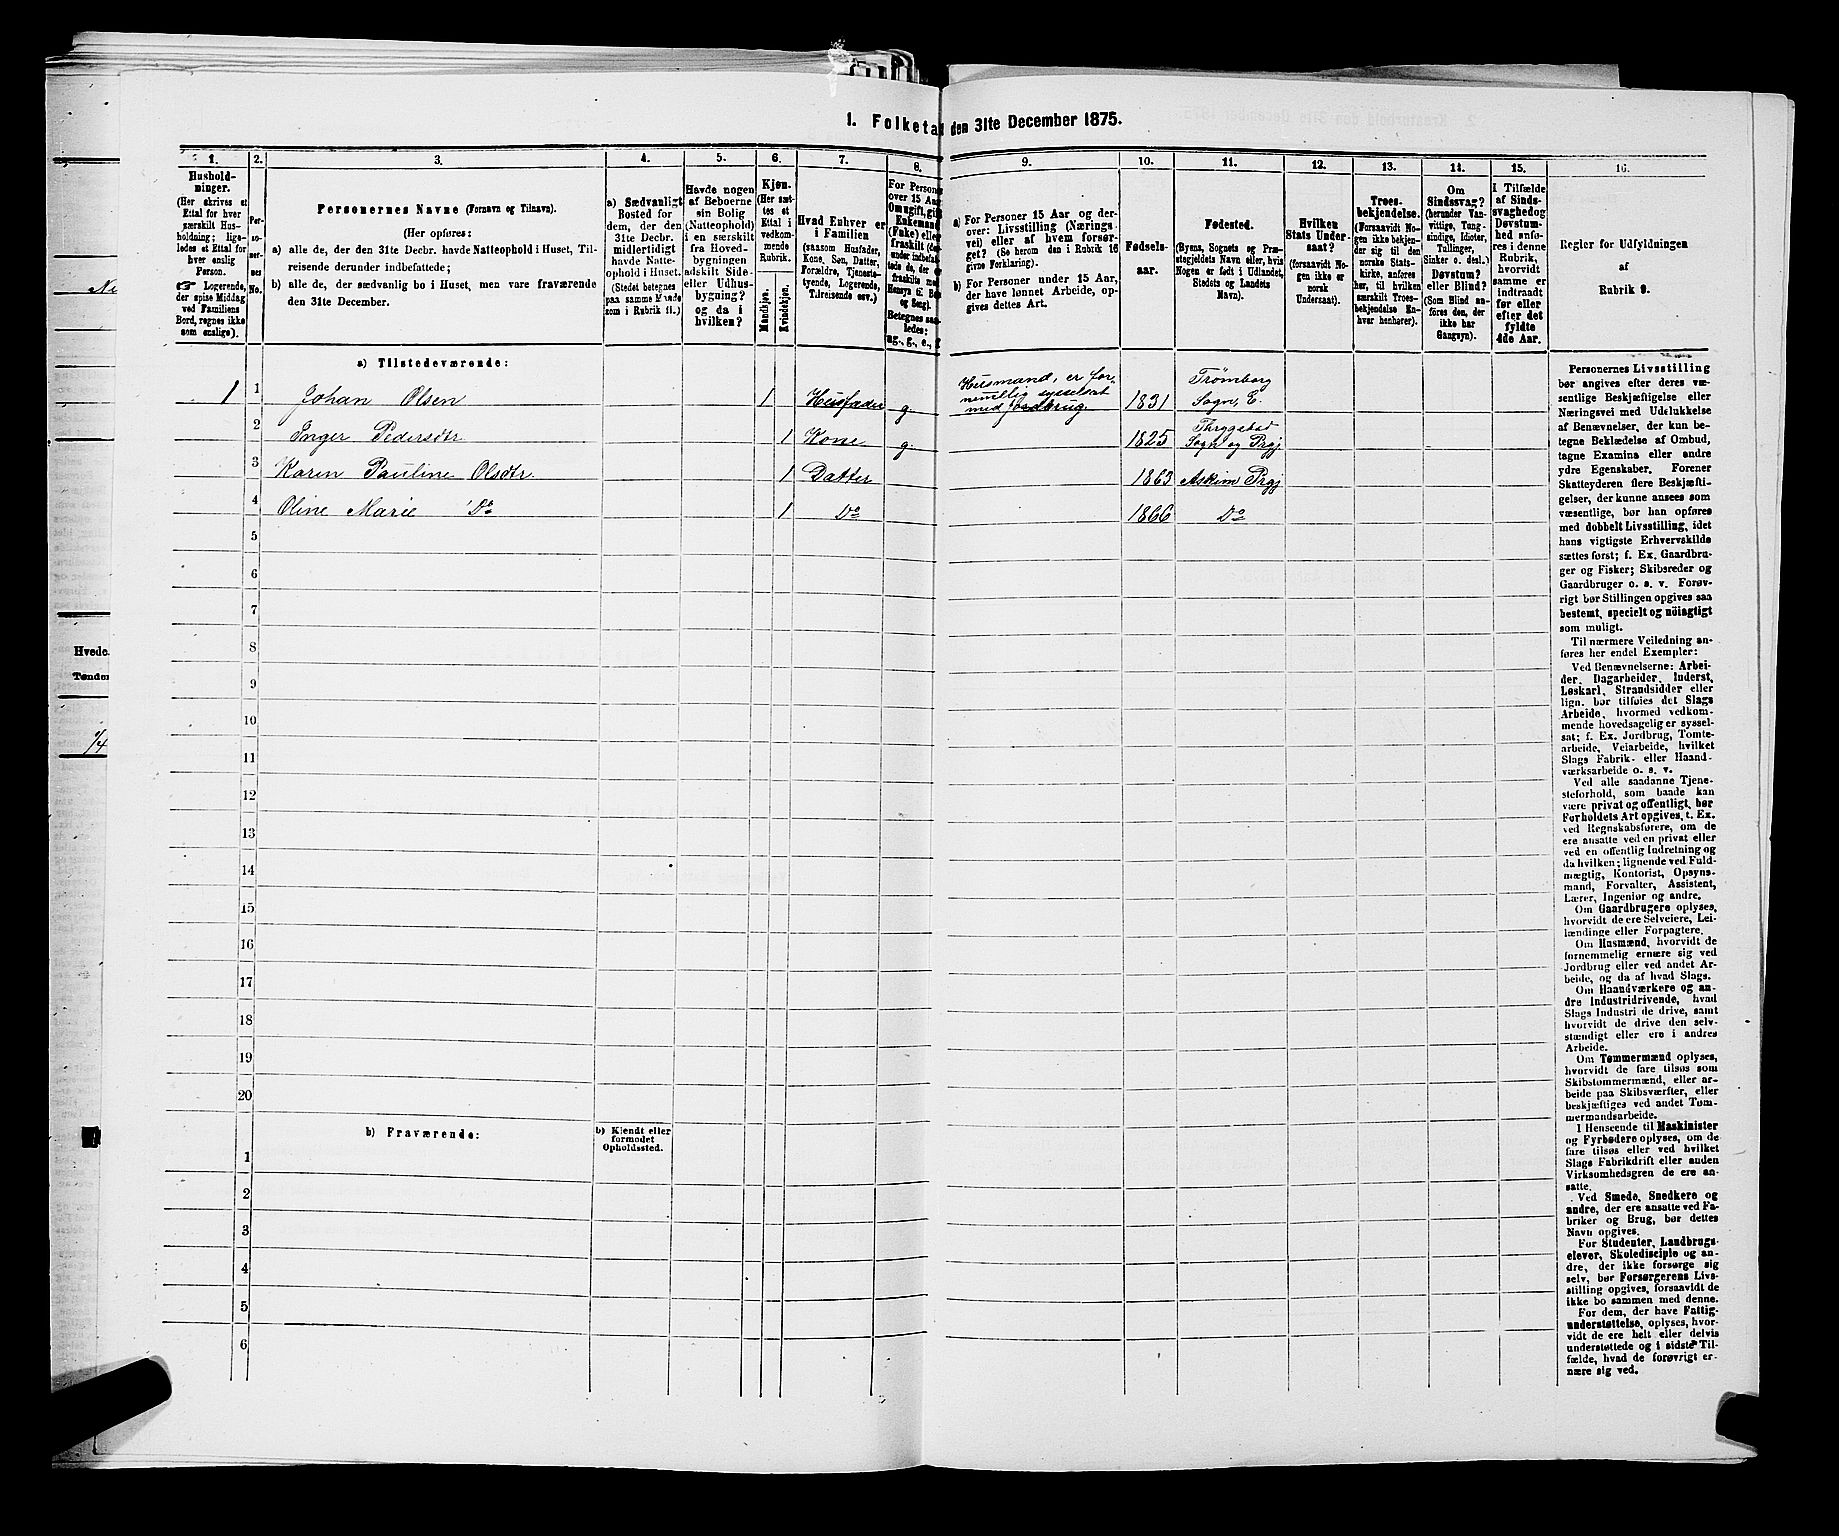 1. Folketa
den 31te December 1875.
1.
2.
3.
4.
5.
6.
7.
8.
9.
10.
11.
12.
13.
14.
15.
16.
Hushold-
ninger.
(Her skrives et
Ettal for hver
særskilt Hus-
holdning; lige-
ledes et Ettal for
hver enslig
Person.
☞ Logerende,
der spise Middag
ved Familiens
Bord, regnes ikke
som enslige).
Per-
so-
ner-
nes
No.
Personernes Navne (Fornavn og Tilnavn).
(Her opføres:
a) alle de, der den 31te Decbr. havde Natteophold i Huset, Til-
reisende derunder indbefattede;
b) alle de, der sædvanlig bo i Huset, men vare fraværende
den 31te December.
a) Sædvanligt
Bosted for
dem, der den
31te Decbr.
midlertidigt
havde Natte-
ophold i Huset.
(Stedet betegnes
paa samme Maade
som i Rubrik 11.)
Havde nogen
af Beboerne
sin Bolig
(Natteophold)
i en særskilt
fra Hoved-
bygningen
adskilt Side-
eller Udhus-
bygning?
og da i
hvilken?
Kjøn.
(Her sæt-
tes et
Ettal i
vedkom-
mende
Rubrik.
Mandkjøn.
Kvindekjøn.
Hvad Enhver er
i Familien
(saasom Husfader,
Kone, Søn, Datter,
Forældre, Tjeneste-
tyende, Logerende,
Tilreisende osv.)
For Persone
over 15 Aar
Om ugift, gift
Enkemand
(Enke) elle
fraskilt (de
under indbefat
tede de, der e
fraskilte me
Hensyn til Bo
og Seng).
Betegnes saa-
ledes:
ug., g., e., f
a) For Personer 15 Aar og der-
over: Livsstilling (Nærings-
vei) eller af hvem forsør-
get? (Se herom den i Rubrik 16
givne Forklaring).
b) For Personer under 15 Aar,
der have lønnet Arbeide, op-
gives dettes Art.
Fødsels-
aar.
Fødested.
(Byens, Sognets og Præ-
stegjeldets Navn eller, hvis
Nogen er født i Udlandet,
Stedets og Landets
Navn).
Hvilken
Stats Under-
saat?
(forsaavidt No-
gen ikke er
norsk
Undersaat).
Troes-
bekjendelse.
(Forsaavidt No-
gen ikke bekjen-
der sig til den
norske Stats-
kirke, anføres
her, til hvilken
særskilt Troes-
bekjendelse En-
hver henhører).
Om
Sindssvag?
(herunder Van-
vittige, Tung-
sindige, Idioter,
Tullinger,
Sinker o. desl.)
Døvstum?
eller Blind?
(Som Blind an-
føres den, der
ikke har
Gangsyn).
I Tilfælde
af Sinds-
svaghed og
Døvstum-
hed anfø-
res i denne
Rubrik,
hvorvidt
samme er
indtraadt
før eller
efter det
fyldte
4de Aar.
Regler for Udfyldningen
af
Rubrik 9.
a) Tilstedeværende:
1 1 Johan Olsen 1 Husfader g. Husmand, er for-
nemlig sysselsat
med Jordbrug. 1831 Trømborg
Sogn, E.
2 Inger Pedersdtr. 1 Kone g. 1825 Thrygstad
Sogn og Prgj.
3 Karen Pauline Olsdtr. 1 Datter 1863 Askim Prgj
4 Oline Marie Do 1 Do 1866 Do
5
6
7
8
9
10
11
12
13
14
15
16
17
18
19
20
b) Fraværende:
b) Kjendt eller
formodet
Opholdssted.
1
2
3
4
5
6
Personernes Livsstilling
bør angives efter deres væ-
sentlige Beskjæftigelse eller
Næringsvei med Udelukkelse
af Benævnelser, der kun be-
tegne Beklædelse af Ombud,
tagne Examina eller andre
ydre Egenskaber. Forener
Skatteyderen flere Beskjæfti-
gelser, der kunne ansees som
væsentlige, bør han opføres
med dobbelt Livsstilling, idet
hans vigtigste Erhvervskilde
sættes først; f. Ex. Gaardbru-
ger og Fisker; Skibsreder og
Gaardbruger o. s. v. Forøv-
rigt bør Stillingen opgives saa
bestemt, specielt og nöiagtigt
som muligt.
Til nærmere Veiledning an-
føres her endel Exempler:
Ved Benævnelserne: Arbei-
der, Dagarbeider, Inderst,
Løskarl, Strandsidder eller
lign. bør tilføies det Slags
Arbeide, hvormed vedkom-
mende hovedsagelig er syssel-
sat; f. Ex. Jordbrug, Tomte-
arbeide, Veiarbeide, hvilket
Slags Fabrik- eller Haand-
værksarbeide o. s. v.
Ved alle saadanne Tjene-
steforhold, som baade kan
være privat og offentligt, bør
Forholdets Art opgives, t. Ex.
ved Regnskabsførere, om de
ere ansatte ved en privat eller
ved en offentlig Indretning og
da hvilken; lignende ved Fuld-
mægtig, Kontorist, Opsyns-
mand, Forvalter, Assistent,
Lærer, Ingeniør og andre.
Om Gaardbrugere oplyses,
hvorvidt de ere Selveiere, Lei-
lændinge eller Forpagtere.
Om Husmænd, hvorvidt de
fornemmelig ernære sig ved
Jordbrug eller ved andet Ar-
beide, og da af hvad Slags.
Om Haandværkere og an-
dre Industridrivende, hvad
Slags Industri de drive, samt
hvorvidt de drive den selv-
stændigt eller ere i andres
Arbeide.
Om Tømmermænd oplyses,
hvorvidt de fare tilsøs som
Skibstømmermænd, eller ar-
beide paa Skibsværfter, eller
beskjæftiges ved andet Tøm-
mermandsarbeide.
I Henseende til Maskinister
og Fyrbødere oplyses, om de
fare tilsøs eller ved hvilket
Slags Fabrikdrift eller anden
Virksomhedsgren de ere an-
satte.
Ved Smede, Snedkere og
andre, der ere ansatte ved Fa-
briker og Brug, bør dettes
Navn opgives.
For Studenter, Landbrugs-
elever, Skoledisciple og an-
dre, der ikke forsørge sig
selv, bør Forsørgerens Livs-
stilling opgives, forsaavidt de
ikke bo sammen med denne.
For dem, der have Fattig-
understøttelse, oplyses, hvor-
vidt de ere helt eller delvis
understøttede og i sidste Til-
fælde, hvad de forøvrigt er-
nære sig ved.
Hvede.
Tønder
1/4